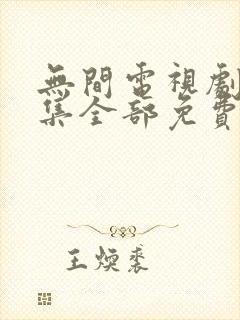 無間電視劇
集全部免費
王煥裘